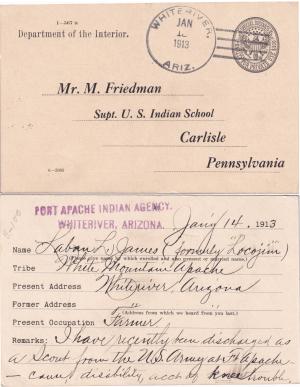 1-567 a
Department of the Interior.
WHITERIVER,
JAN
1913
ARIZ.
Mr. M. Friedman
Supt. U. S. Indian School
Carlisle
Pennsylvania
FORT APACHE INDIAN AGENCY,
WHITERIVER, ARIZONA.
Jan'y 14, 1913
Name Laban L. James (formerly "Locojim")
(Please give name by which enrolled and also present or married name.)
Tribe White Mountain Apache
Present Address Whiteriver, Arizona
Former Address "
(Address from which we heard from you last.)
Present Occupation Farmer
Remarks: I have recently been discharged as
a Scout from the U.S. Army at Ft Apache
— cause disability, acct of knee trouble